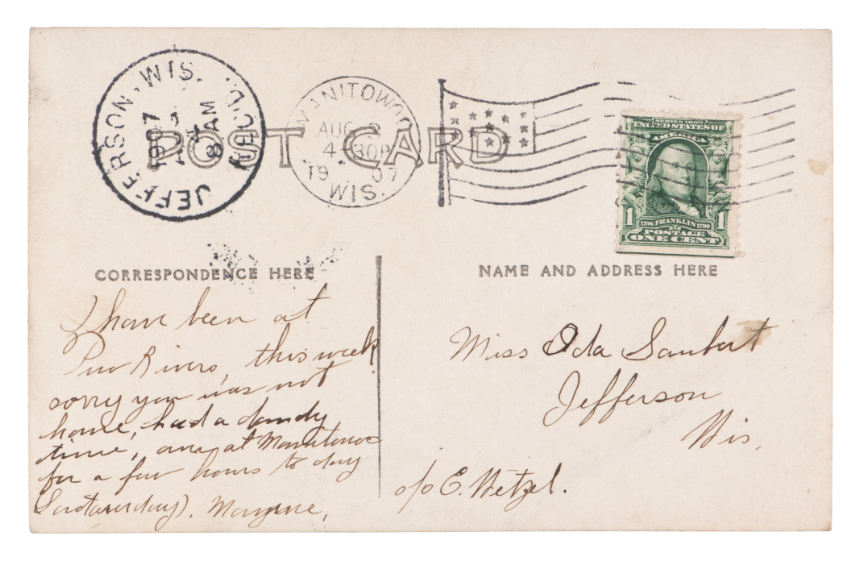 JEFFERSON, WIS. REC'D.
1907
8 AM
POST CARD
MANITOWOC
AUG 2
4 30P
19 07
WIS.
SERIES 1902
UNITED STATES OF
AMERICA
1 1706 FRANKLIN 1790 1
POSTAGE
ONE CENT
CORRESPONDENCE HERE
I have been at
Two Rivers, this week
sorry you was not
home, had a dandy
time, am at Manitowoc
for a few hours to day
(Saturday). Mayme,
NAME AND ADDRESS HERE
Miss Ida Lambert
Jefferson
Wis.
c/o E. Wetzel.